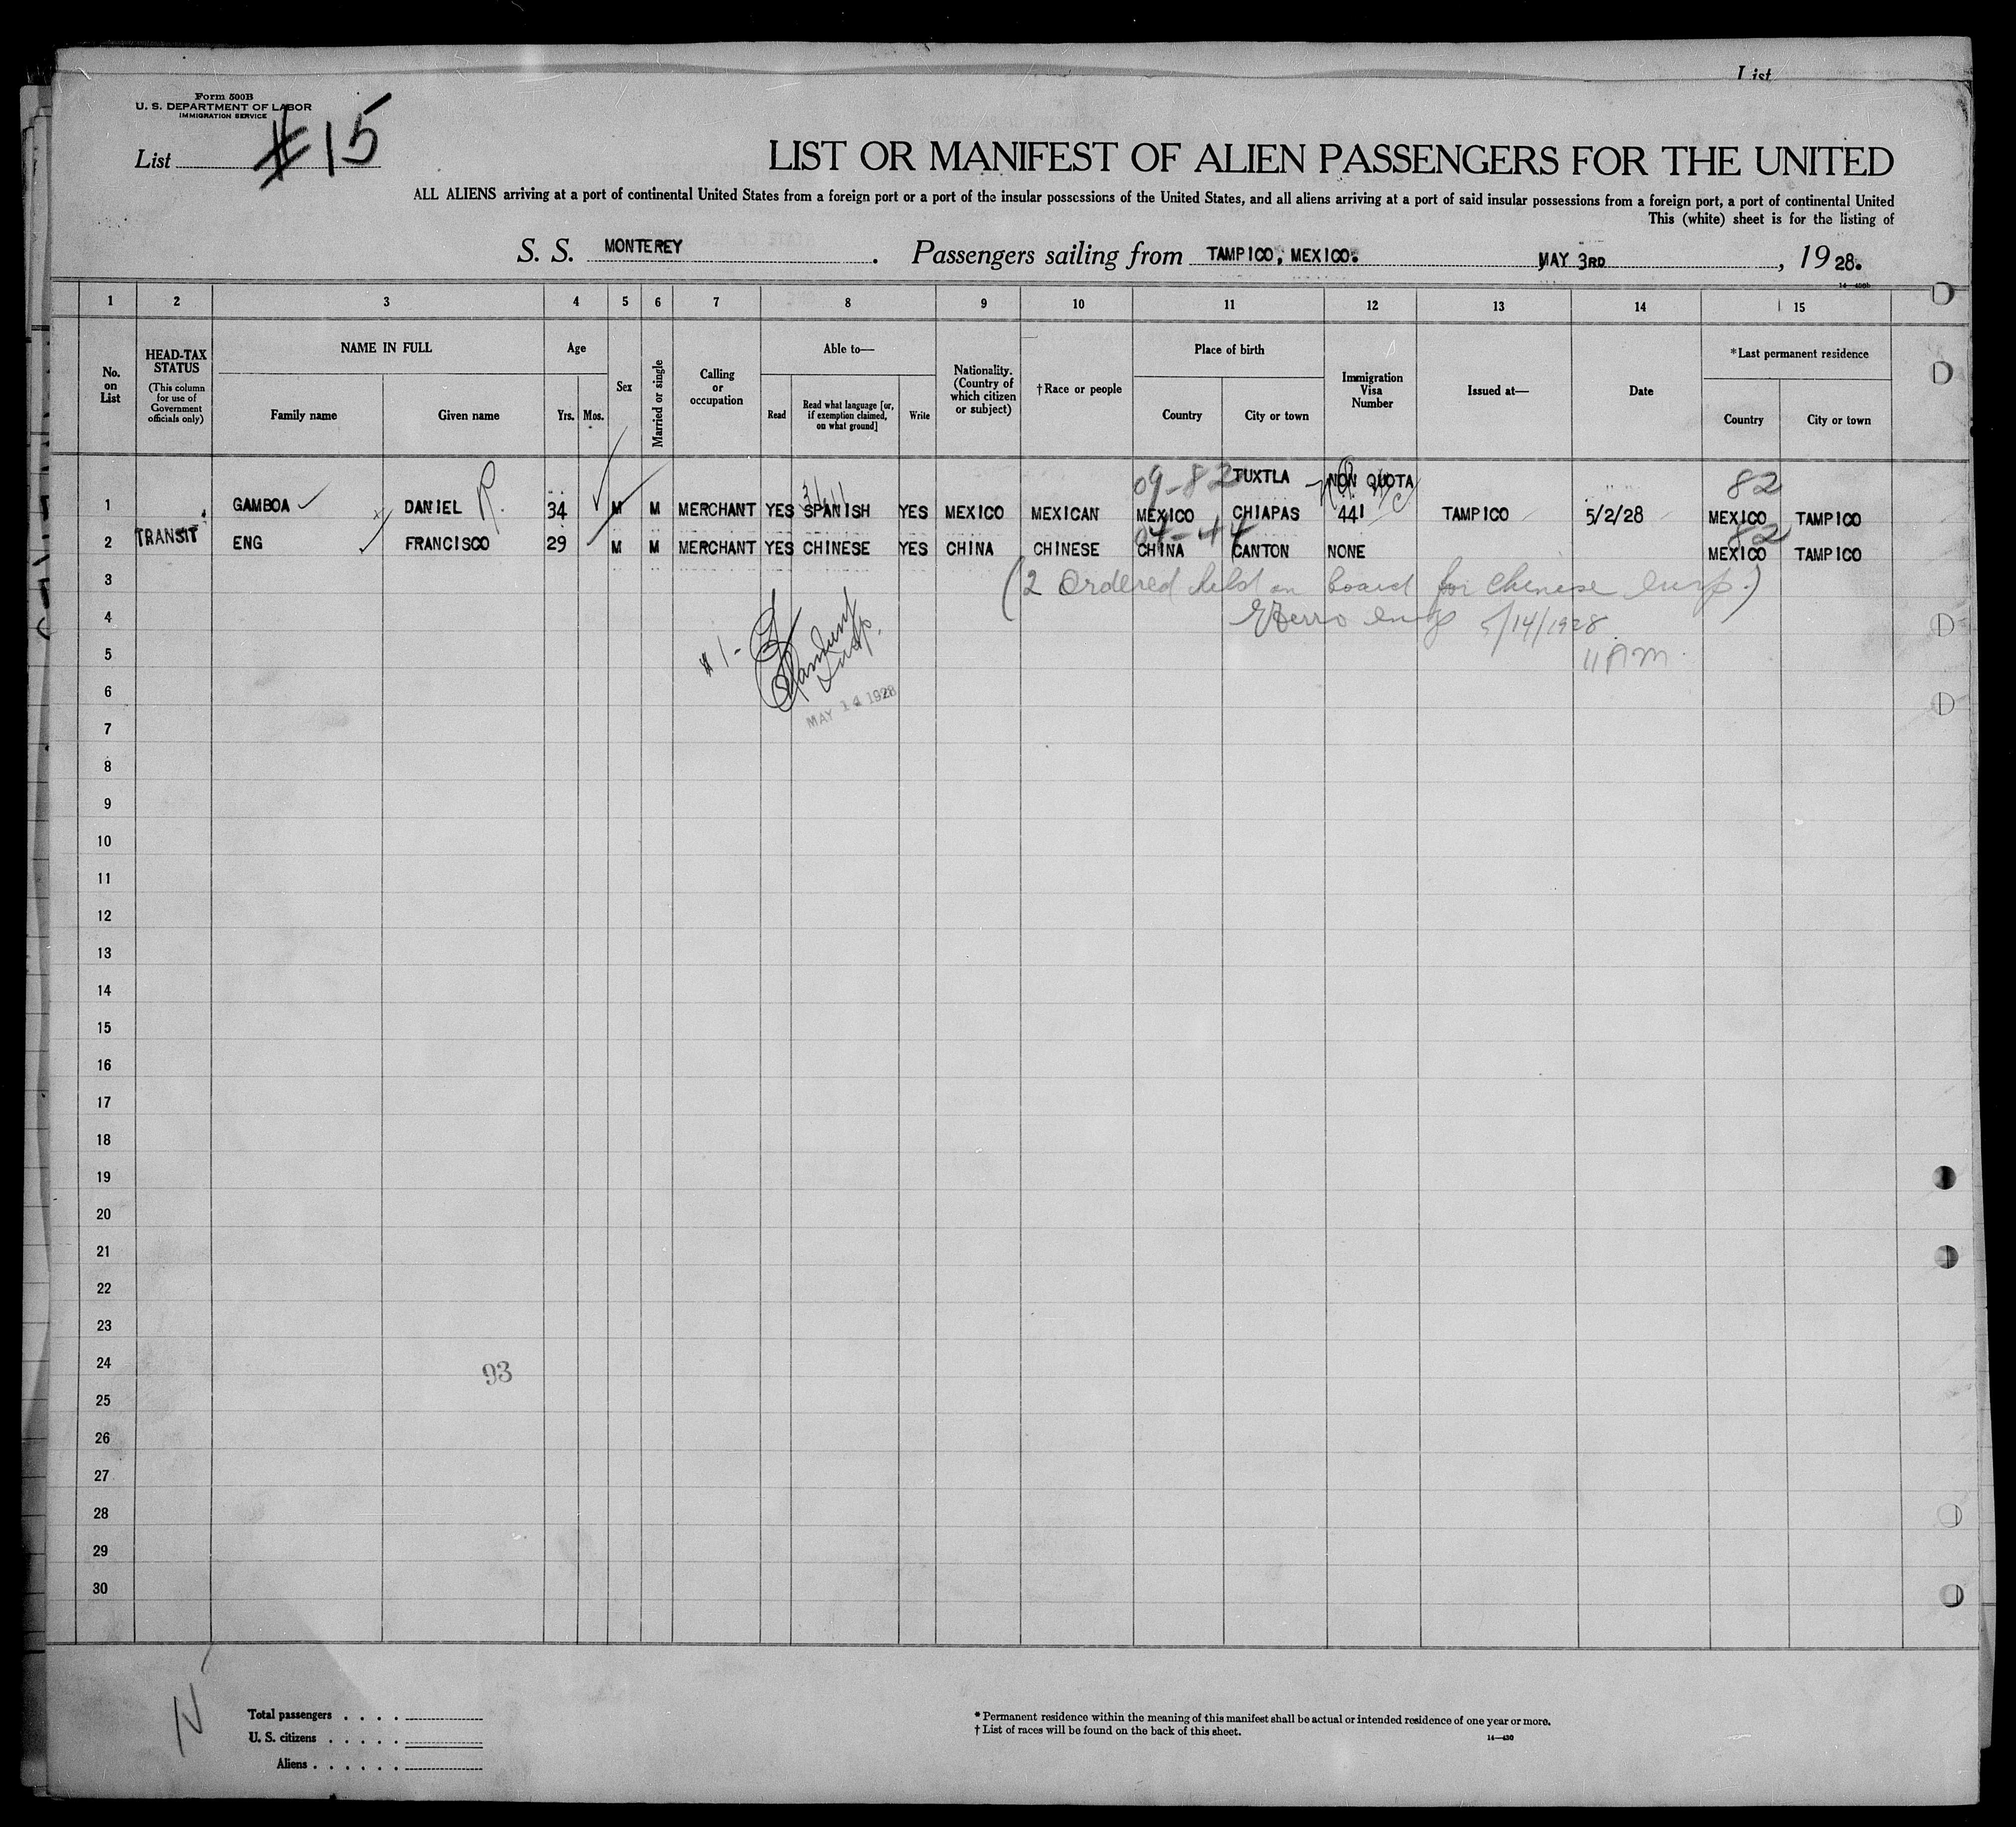 List
Form 500B
U. S. DEPARTMENT OF LABOR
IMMIGRATION SERVICE
List # 15
LIST OR MANIFEST OF ALIEN PASSENGERS FOR THE UNITED
ALL ALIENS arriving at a port of continental United States from a foreign port or a port of the insular possessions of the United States, and all aliens arriving at a port of said insular possessions from a foreign port, a port of continental United
This (white) sheet is for the listing of
S. S. MONTEREY. Passengers sailing from TAMPICO, MEXICO. MAY 3RD, 1928.
14—430b
1 2 3 4 5 6 7 8 9 10 11 12 13 14 15
No. on List
HEAD-TAX STATUS
(This column for use of Government officials only)
NAME IN FULL
Family name
Given name
Age
Yrs.
Mos.
Sex
Married or single
Calling or occupation
Able to—
Read
Read what language [or, if exemption claimed, on what ground]
Write
Nationality. (Country of which citizen or subject)
†Race or people
Place of birth
Country
City or town
Immigration Visa Number
Issued at—
Date
*Last permanent residence
Country
City or town
09-82 TUXTLA NON QUOTA 82
1 GAMBOA DANIEL R. 34 M M MERCHANT YES SPANISH YES MEXICO MEXICAN MEXICO CHIAPAS 441 TAMPICO 5/2/28 MEXICO TAMPICO
04-44 82
2 TRANSIT ENG FRANCISCO 29 M M MERCHANT YES CHINESE YES CHINA CHINESE CHINA CANTON NONE MEXICO TAMPICO
3 (2 Ordered held on board for Chinese insp.)
4 5/14/1928
5 11 AM
#1- Insp.
6
MAY 14 1928
7
8
9
10
11
12
13
14
15
16
17
18
19
20
21
22
23
24
93
25
26
27
28
29
30
Total passengers . . . .
U. S. citizens . . . . .
Aliens . . . . . .
* Permanent residence within the meaning of this manifest shall be actual or intended residence of one year or more.
† List of races will be found on the back of this sheet.
14—430